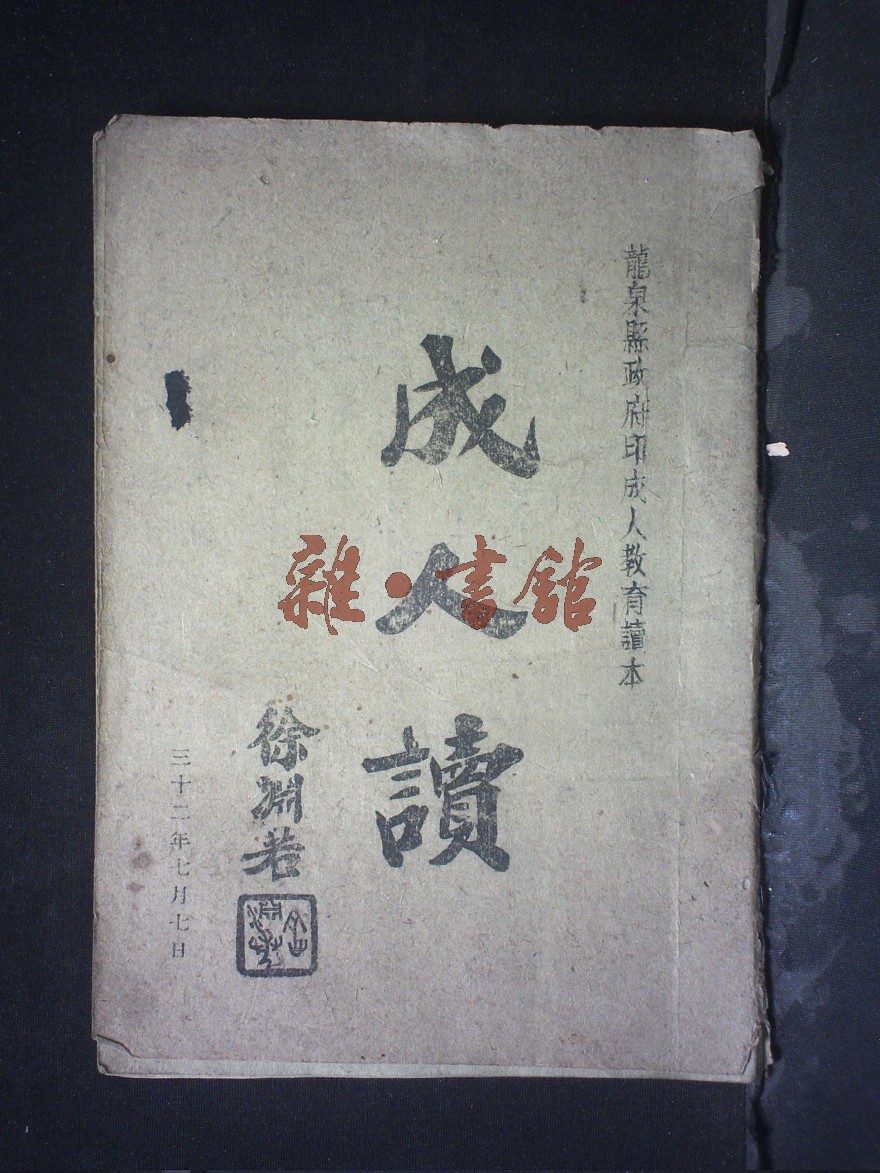 龍泉縣政府印成人教育讀本
成人讀
徐淵若
三十二年七月七日
雜·書館